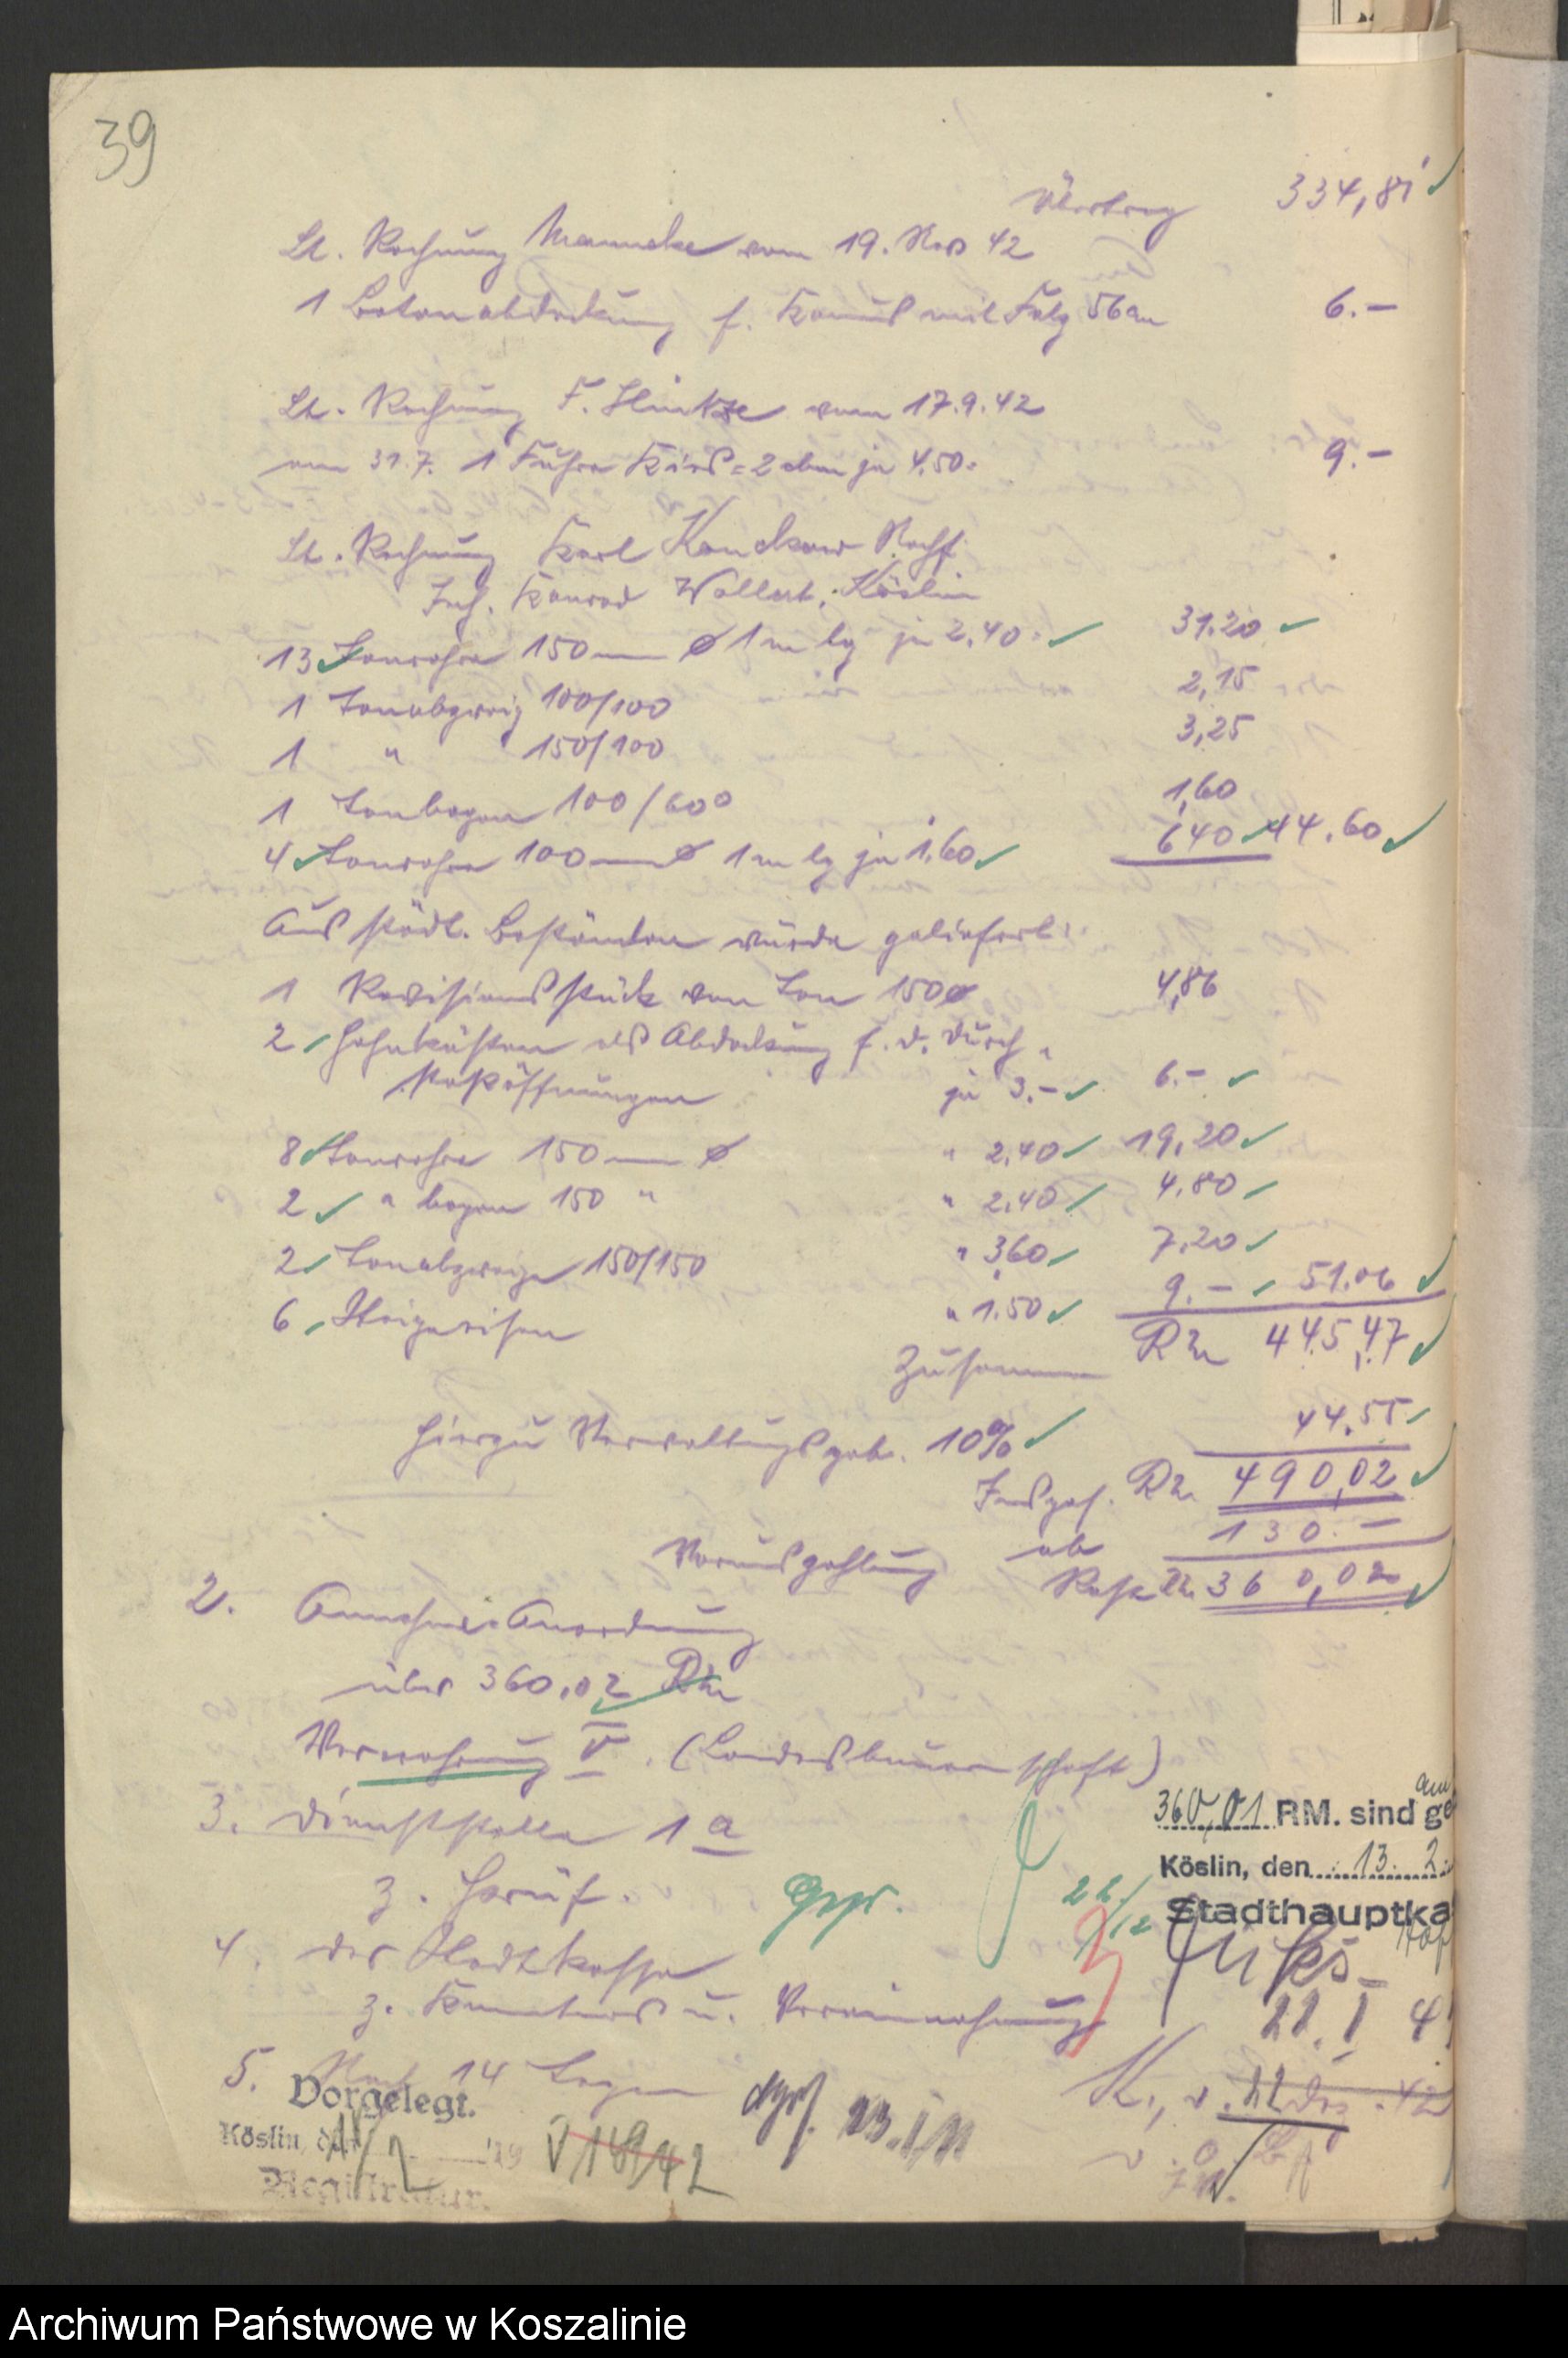 39
Übertrag 334,81
Lt. Rechnung Mannske vom 19. Nov 42
1 Betonabdeckung f. Kanal mit Falz 56 cm 6.–
Lt. Rechnung F. Hintze vom 17.9.42
am 31.7. 1 Fuhre Kies = 2 cbm je 4.50. 9.–
Lt. Rechnung Karl Nachf.
Inh. Konrad Wollert, Köslin
13 Tonrohre 150 mm ø 1 m lg je 2.40. 31.20
1 Tonabzweig 100/100 2,15
1 " 150/100 3,25
1 Tonbogen 100/60° 1,60
4 Tonrohre 100 mm ø 1 m lg je 1.60 6,40 44.60
Aus städt. Beständen wurde geliefert:
1 Revisionsstück von Ton 150 ø 4,86
2 Hahnkästen als Abdeckung f. d. Durch-
stoßöffnungen je 3.– 6.–
8 Tonrohre 150 mm ø " 2.40 19,20
2 " bogen 150 " " 2.40 4.80
2 Tonabzweige 150/150 " 3.60 7.20
6 Steigeeisen " 1.50 9.– 51.06
Zusammen RM 445,47
Hierzu Verwaltungsgeb. 10% 44.55
Insges. RM 490,02
Vorauszahlung ab 130.–
Rest RM 360,02
2. Annahme-Anordnung
über 360,02 RM
Verwahrung V. (Landesbauernschaft)
3. Dienststelle 1a
z. Prüf.
Gepr. 22/12
4. der Stadtkasse
z. Kenntnis u. Vereinnahmung
5. Nach 14 Tagen
360,01 RM. sind am ge
Köslin, den 13. 2.
Stadthauptka
22. I 4
K., d. 22 Dez. 42
Vorgelegt.
Köslin, den 19
Registratur.